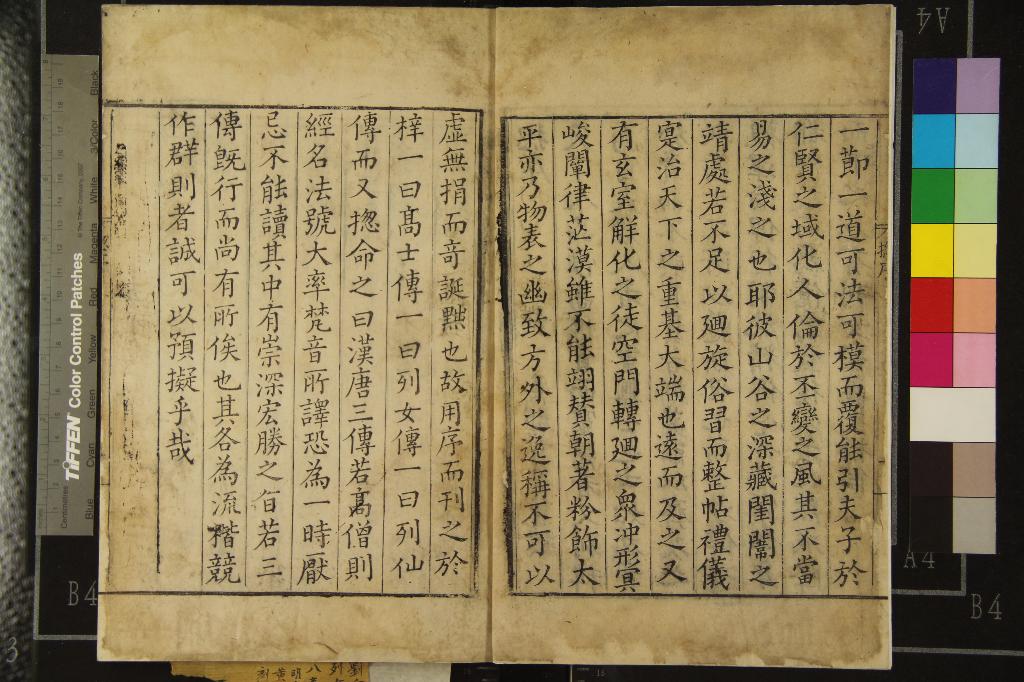 一莭一道可法可模而覆能引夫子於
仁賢之域化人倫於丕變之風其不當
易之淺之也耶彼山谷之深藏閨閫之
靖處若不足以廻旋俗習而整帖禮儀
寔治天下之重基大端也遠而及之又
有玄室解化之徒空門轉廻之衆冲形冥
峻闡律茫漠雖不能翊賛朝著粉飾太
平亦乃物表之幽致方外之逸稱不可以
虛無捐而竒誕黜也故用序而刊之於
梓一曰髙士傳一曰列女傳一曰列仙
傳而又揔命之曰漢唐三傳若髙僧則
經名法號大率梵音所譯恐為一時厭
忌不能讀其中有崇深宏勝之旨若三
傳旣行而尚有所俟也其各為流楷競
作群則者誠可以預擬乎哉
TIFFEN Color Control Patches
© The Tiffen Company, 2007
Centimetres
Blue
Cyan
Green
Yellow
Red
Magenta
White
3/Color
Black
A4
A4
B4
B4
3